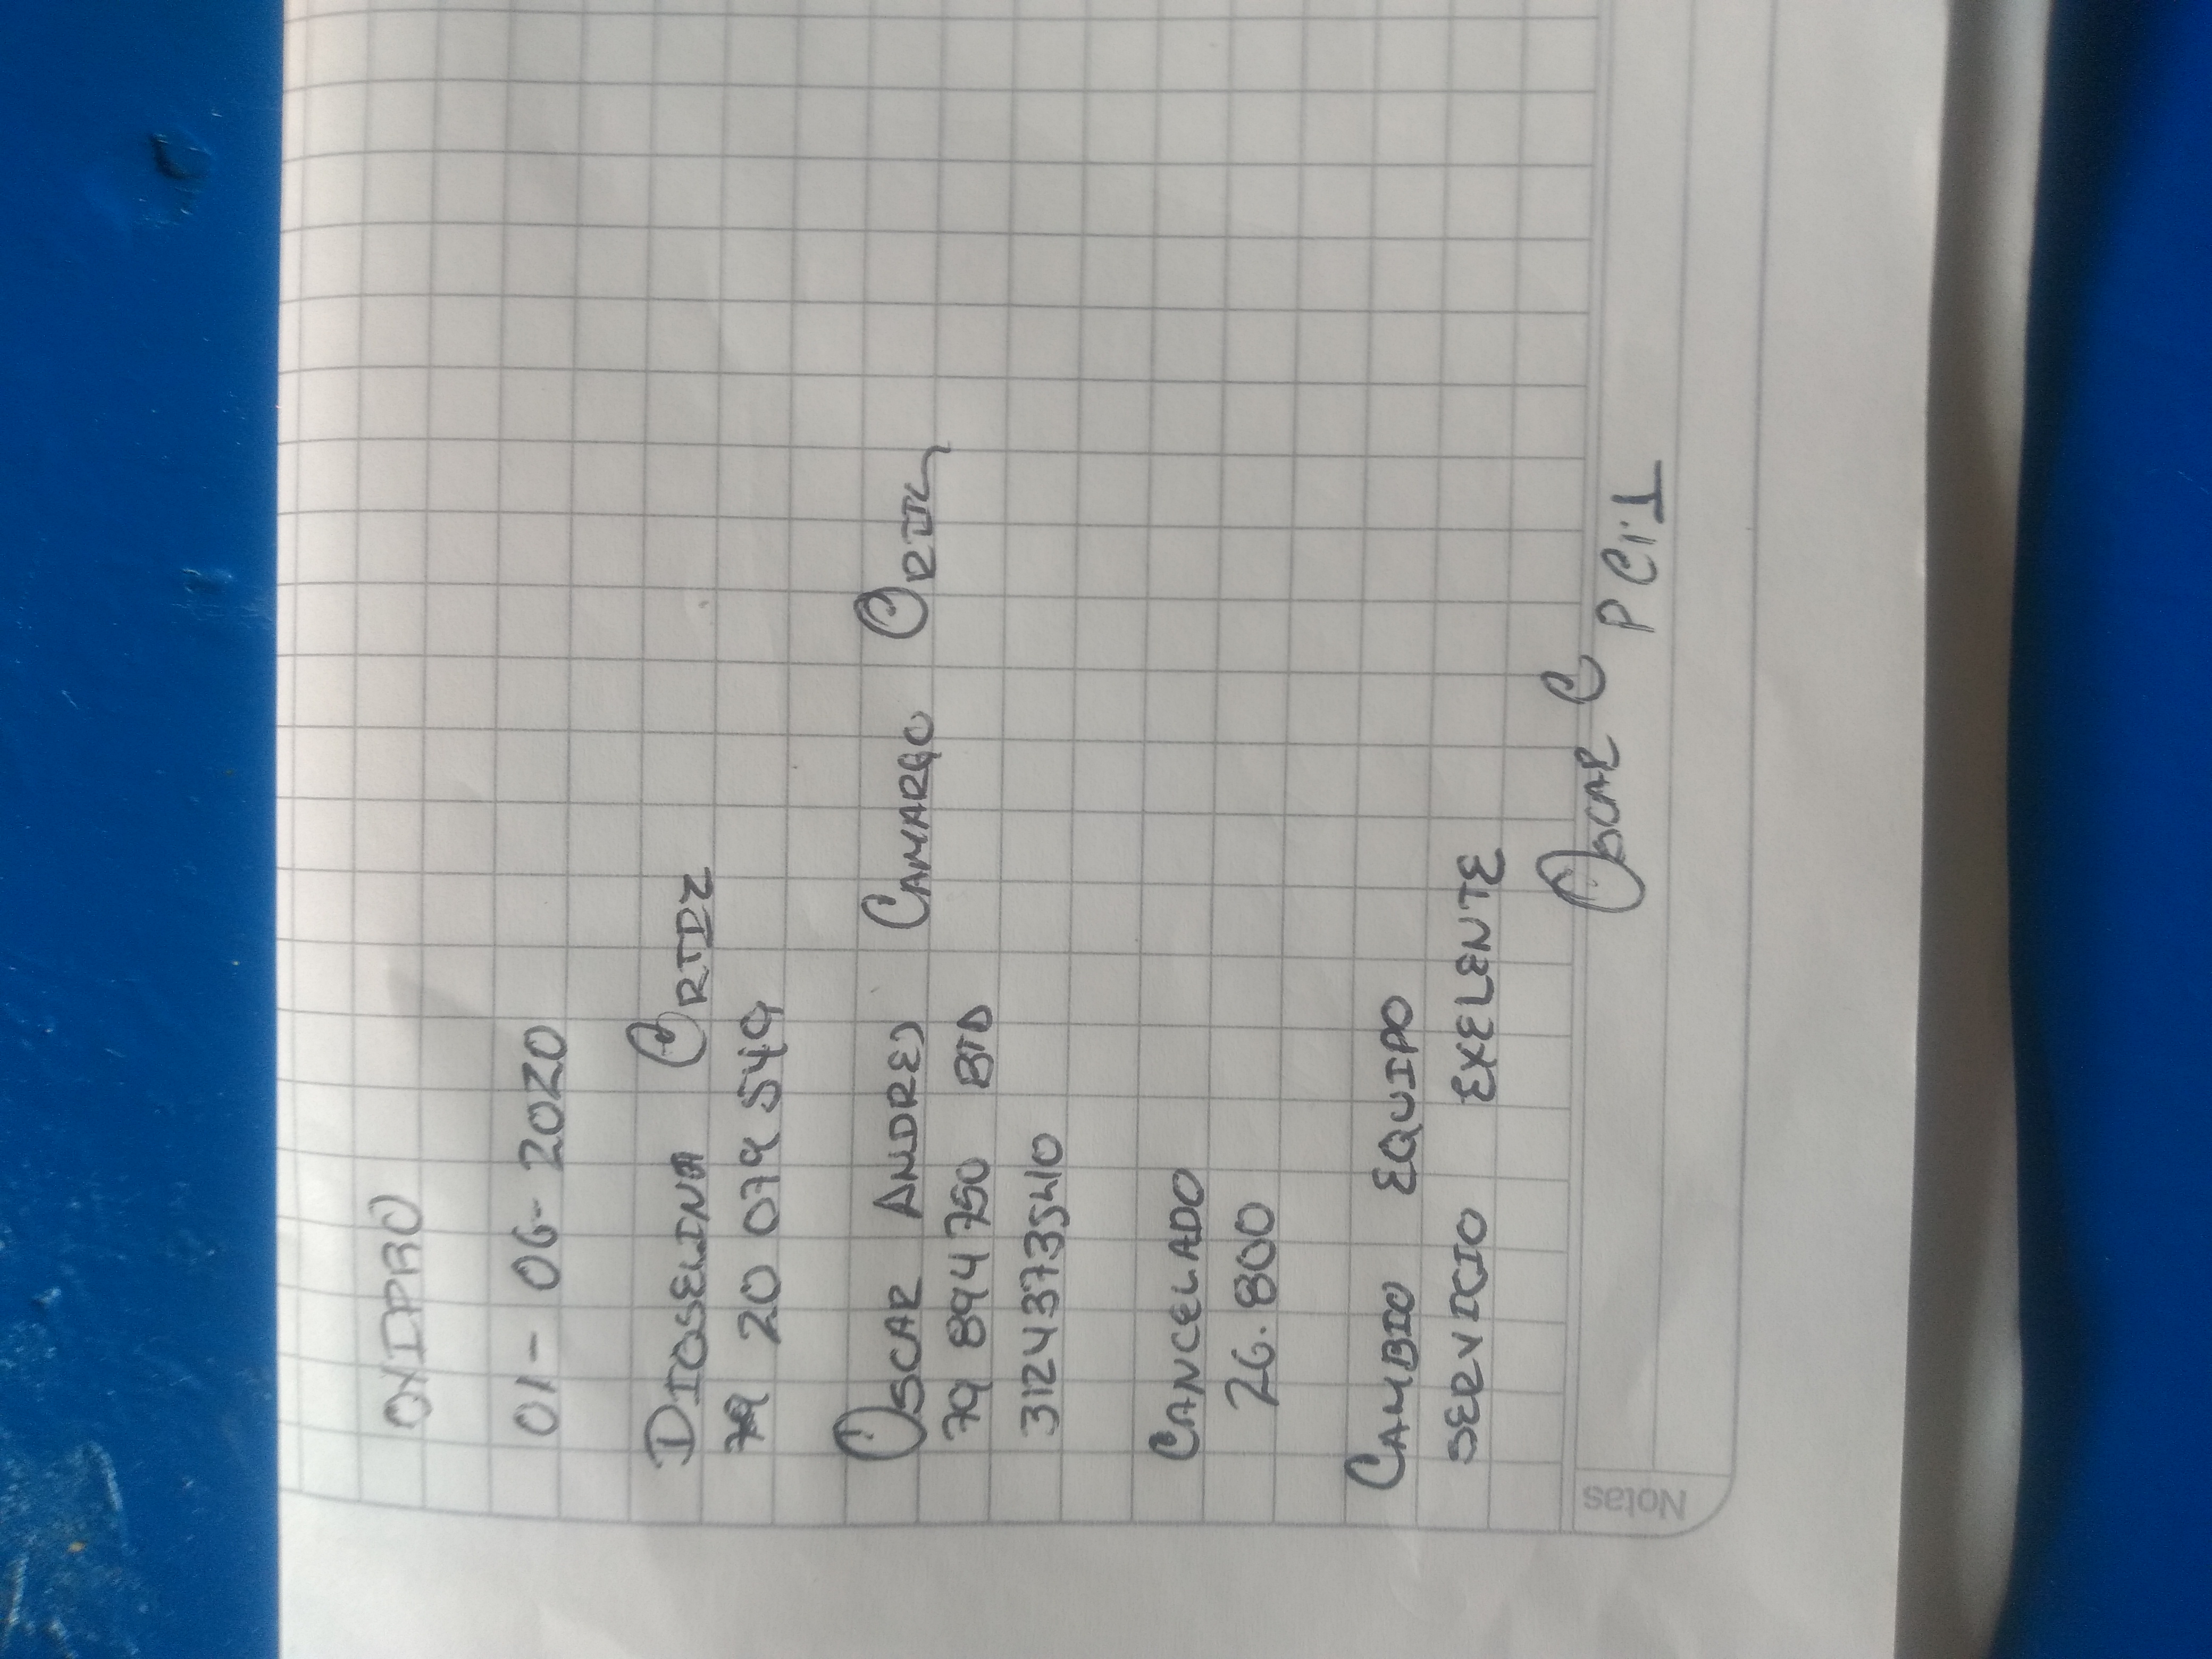 OXIPRO
01-06-2020
DIOSELINA ORTIZ
20 079 549
OSCAR ANDRES CAMARGO ORTIZ
79 894 750 BTA
3124373540
CANCELADO
26.800
CAMBIO EQUIPO
SERVICIO EXELENTE
OSCAR C
Notas